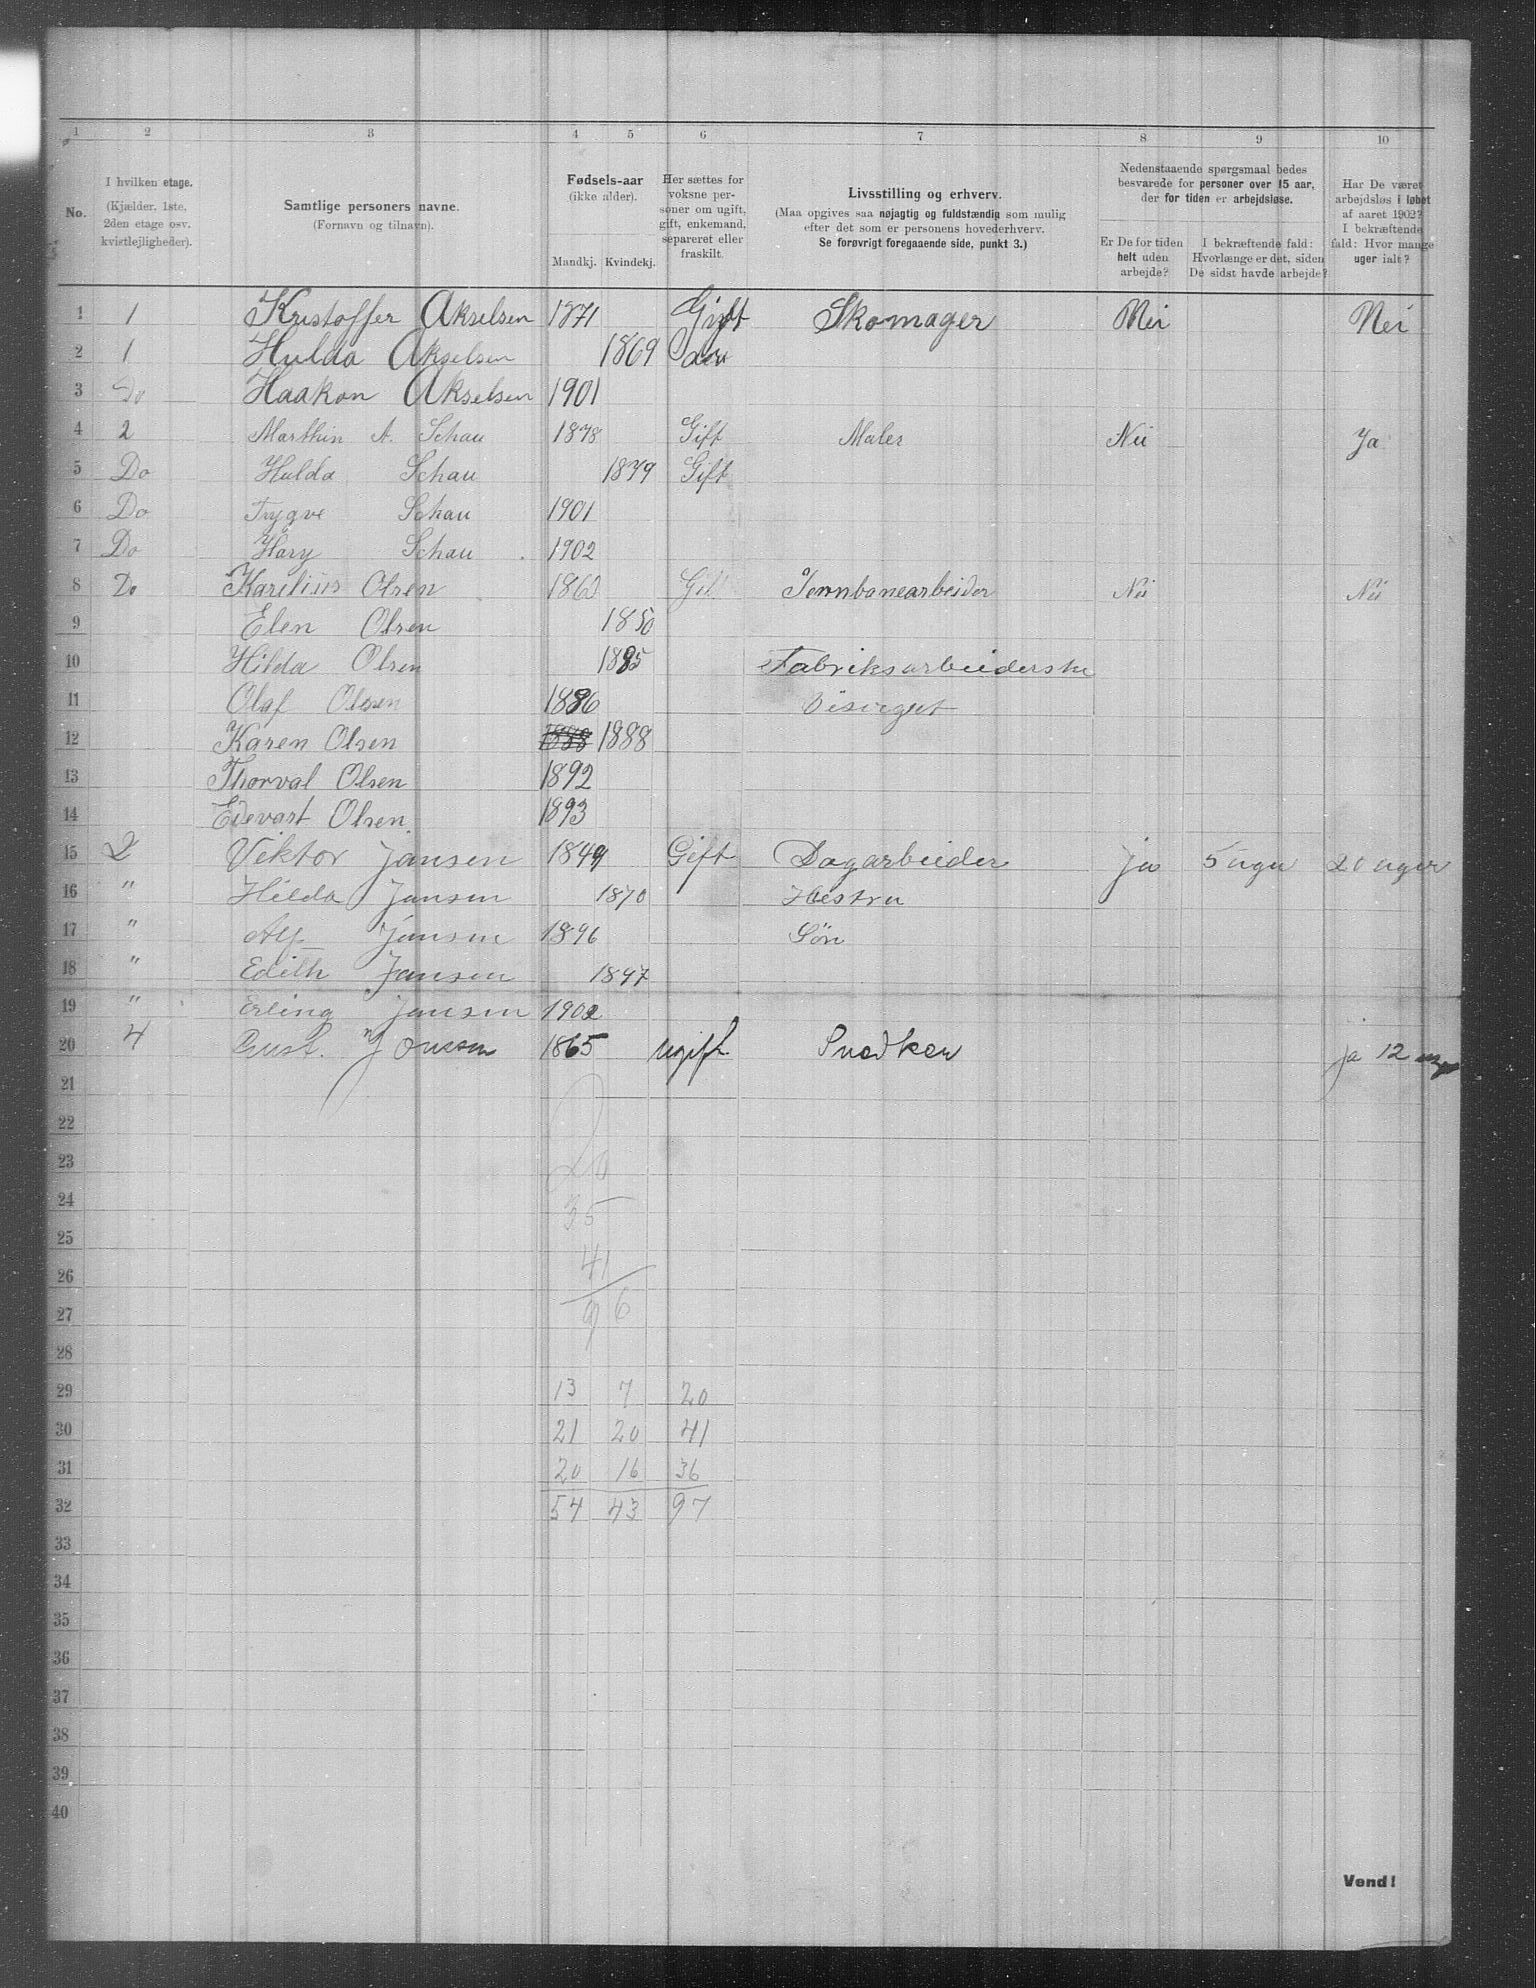 1 2 3 4 5 6 7 8 9 10
No.
I hvilken etage.
(Kjælder, 1ste,
2den etage osv.
kvistlejligheder).
Samtlige personers navne.
(Fornavn og tilnavn).
Fødsels-aar
(ikke alder).
Mandkj. Kvindekj.
Her sættes for
voksne per-
soner om ugift,
gift, enkemand,
separeret eller
fraskilt.
Livsstilling og erhverv.
(Maa opgives saa nøjagtig og fuldstændig som mulig
efter det som er personens hovederhverv.
Se forøvrigt foregaaende side, punkt 3.)
Nedenstaaende spørgsmaal bedes
besvarede for personer over 15 aar,
der for tiden er arbejdsløse.
Er De for tiden
helt uden
arbejde?
I bekræftende fald:
Hvorlænge er det, siden
De sidst havde arbejde?
Har De været
arbejdsløs i løbet
af aaret 1902?
I bekræftende
fald: Hvor mange
uger ialt?
1 1 Kristoffer Akselsen 1871 Gift Skomager Nei Nei
2 1 Hulda Akselsen 1869
3 Do Haakon Akselsen 1901
4 2 Marthin A. Schau 1878 Gift Maler Nei Ja
5 Do Hulda Schau 1879 Gift
6 Do Trygve Schau 1901
7 Do Hary Schau 1902
8 Do Karelius Olsen 186 Gift Jernbanearbeider Nei Nei
9 Elen Olsen 1850
10 Hilda Olsen 1885 Fabriksarbeiderske
11 Olaf Olssen 1886 Visergut
12 Karen Olsen 1888 1888
13 Thorval Olsen 1892
14 Edevart Olsen 1893
15 2 Viktor Jansen 1849 Gift Dagarbeider Ja 5 uger 20 uger
16 " Hilda Jansen 1870 Hustru
17 " Alf Jansen 1896 Sön
18 " Edith Jansen 1897
19 " Erling Jansen 1902
20 4 Gust. Jonsson 1865 ugift Snedker ja 12 uger
21
22
23 20
24 35
25
26 41
27 96
28
29 13 7 20
30 21 20 41
31 20 16 36
32 54 43 97
33
34
35
36
37
38
39
40
Vend!